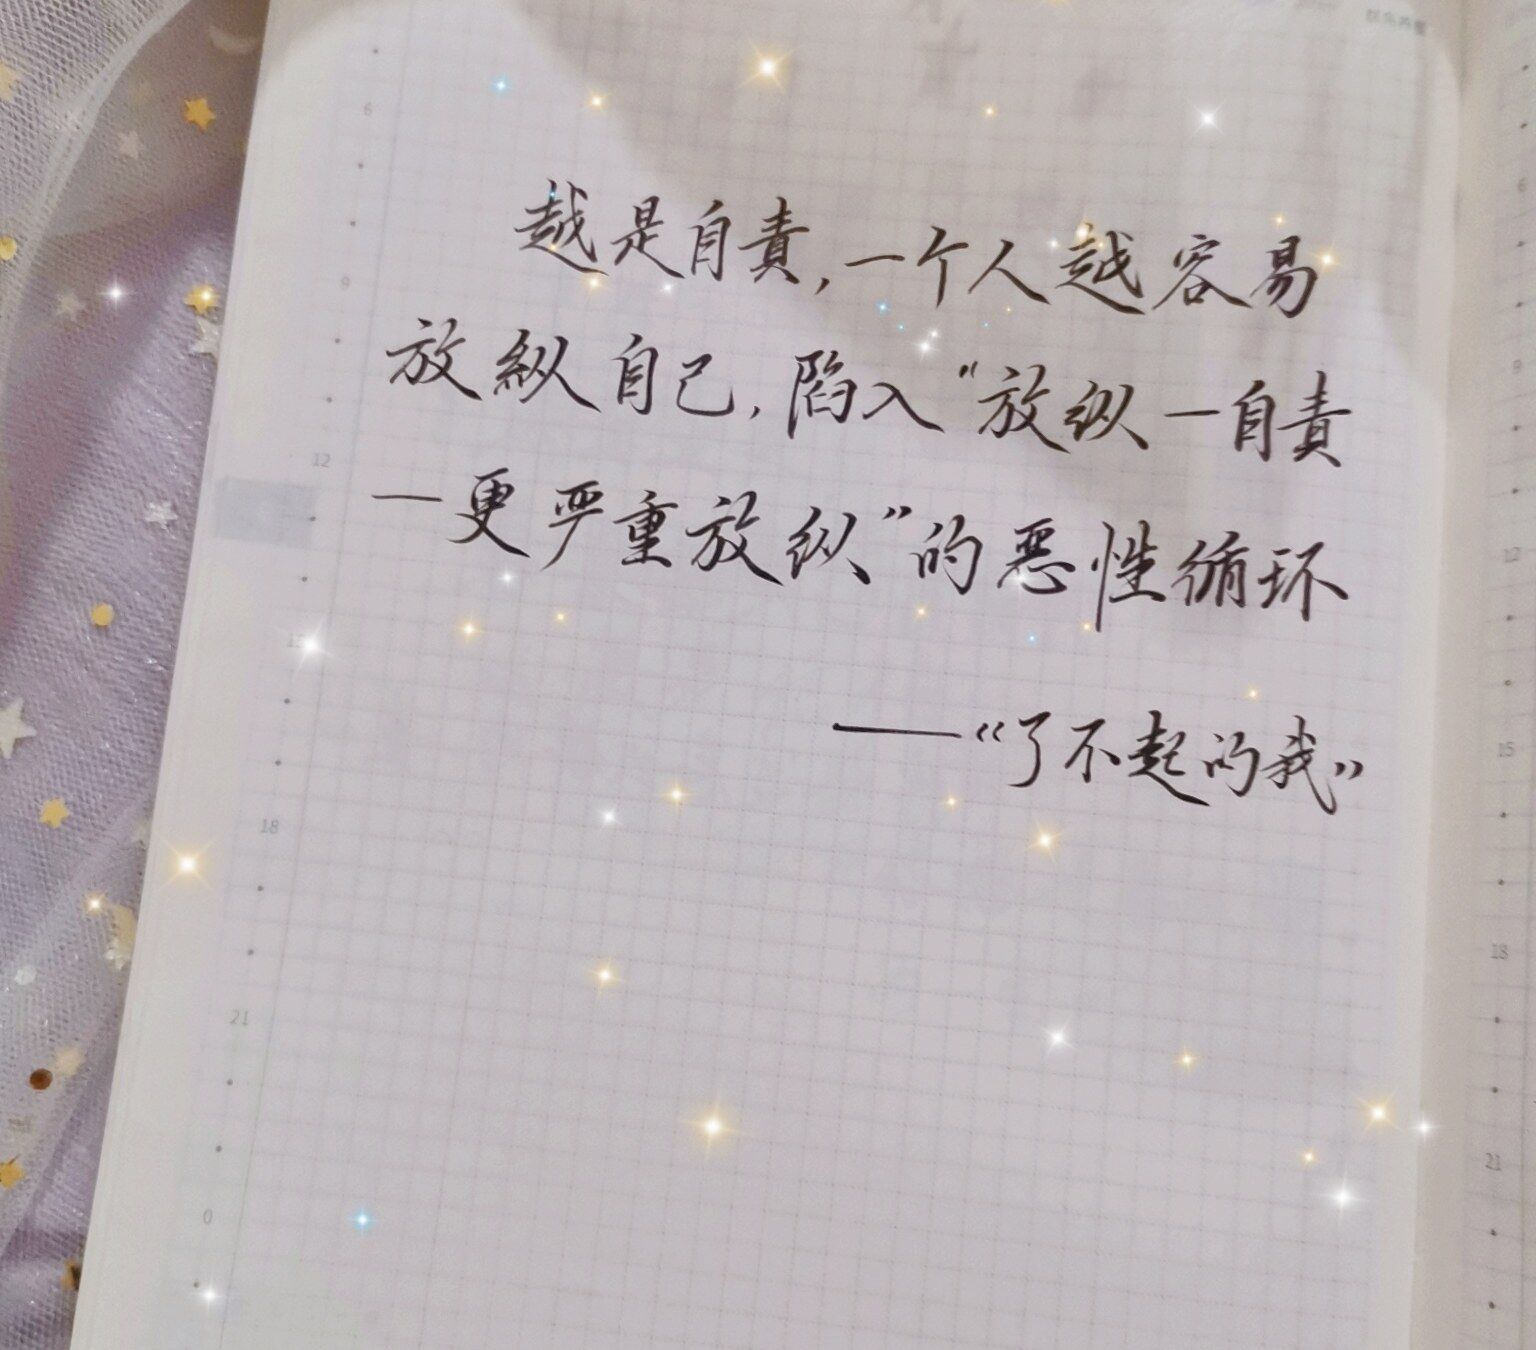 越是自責,一个人越容易
放縱自己,陷入“放纵—自責
—更严重放纵”的恶性循环
——“了不起的我”
6
9
12
15
18
21
0
6
9
12
15
18
21